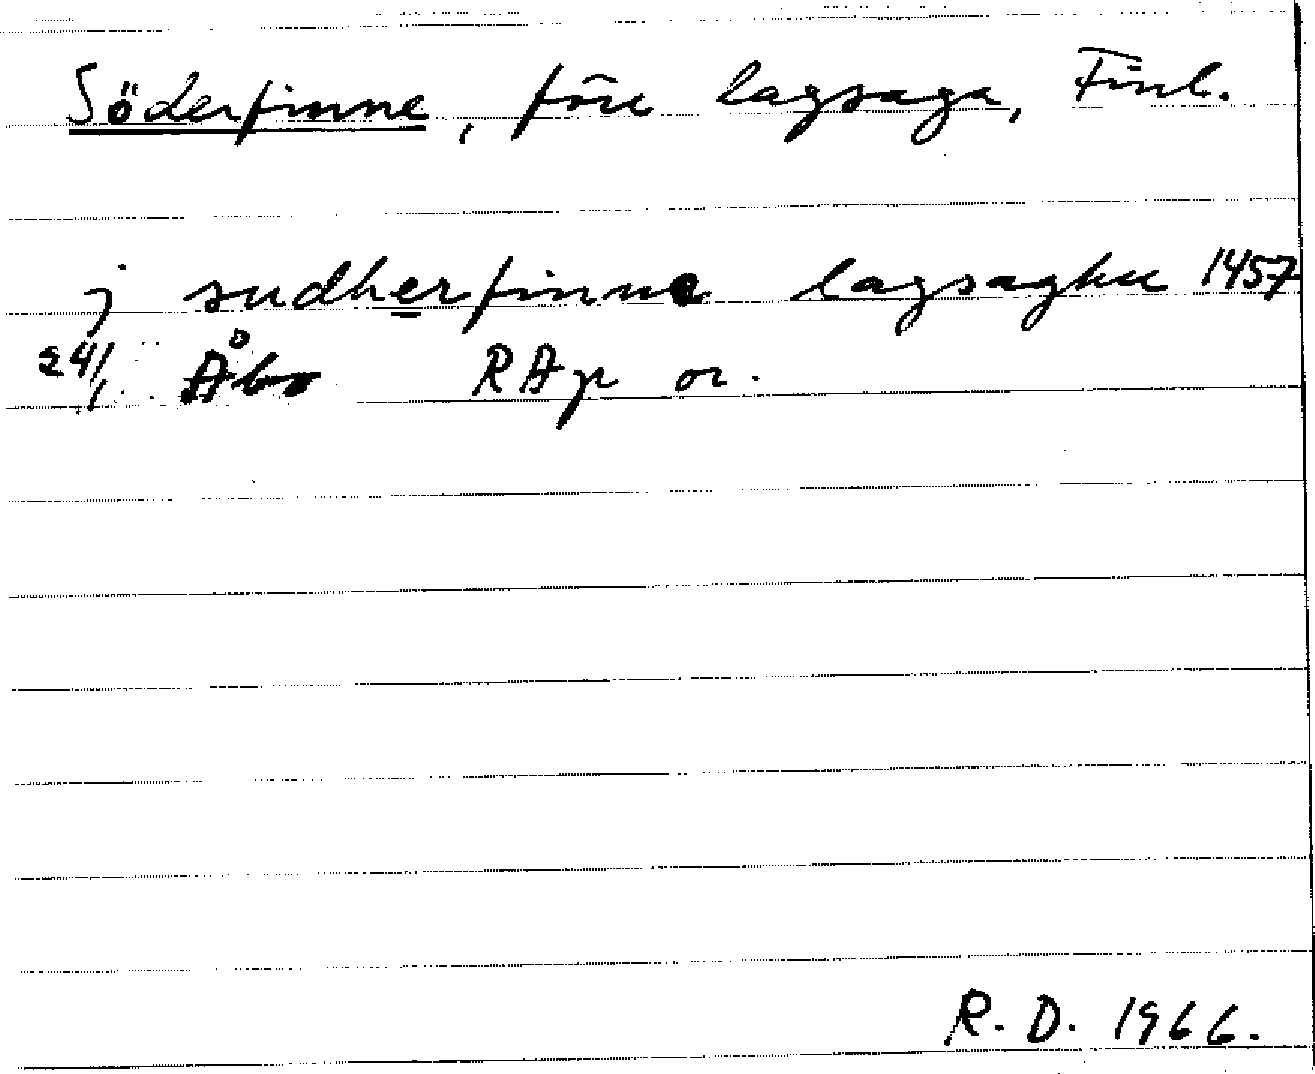 Söderfinne, förr lagsaga, Finl.
j sudherfinne lagsaghu 1457
24/1 Åbo RAp or.
R. D. 1966.